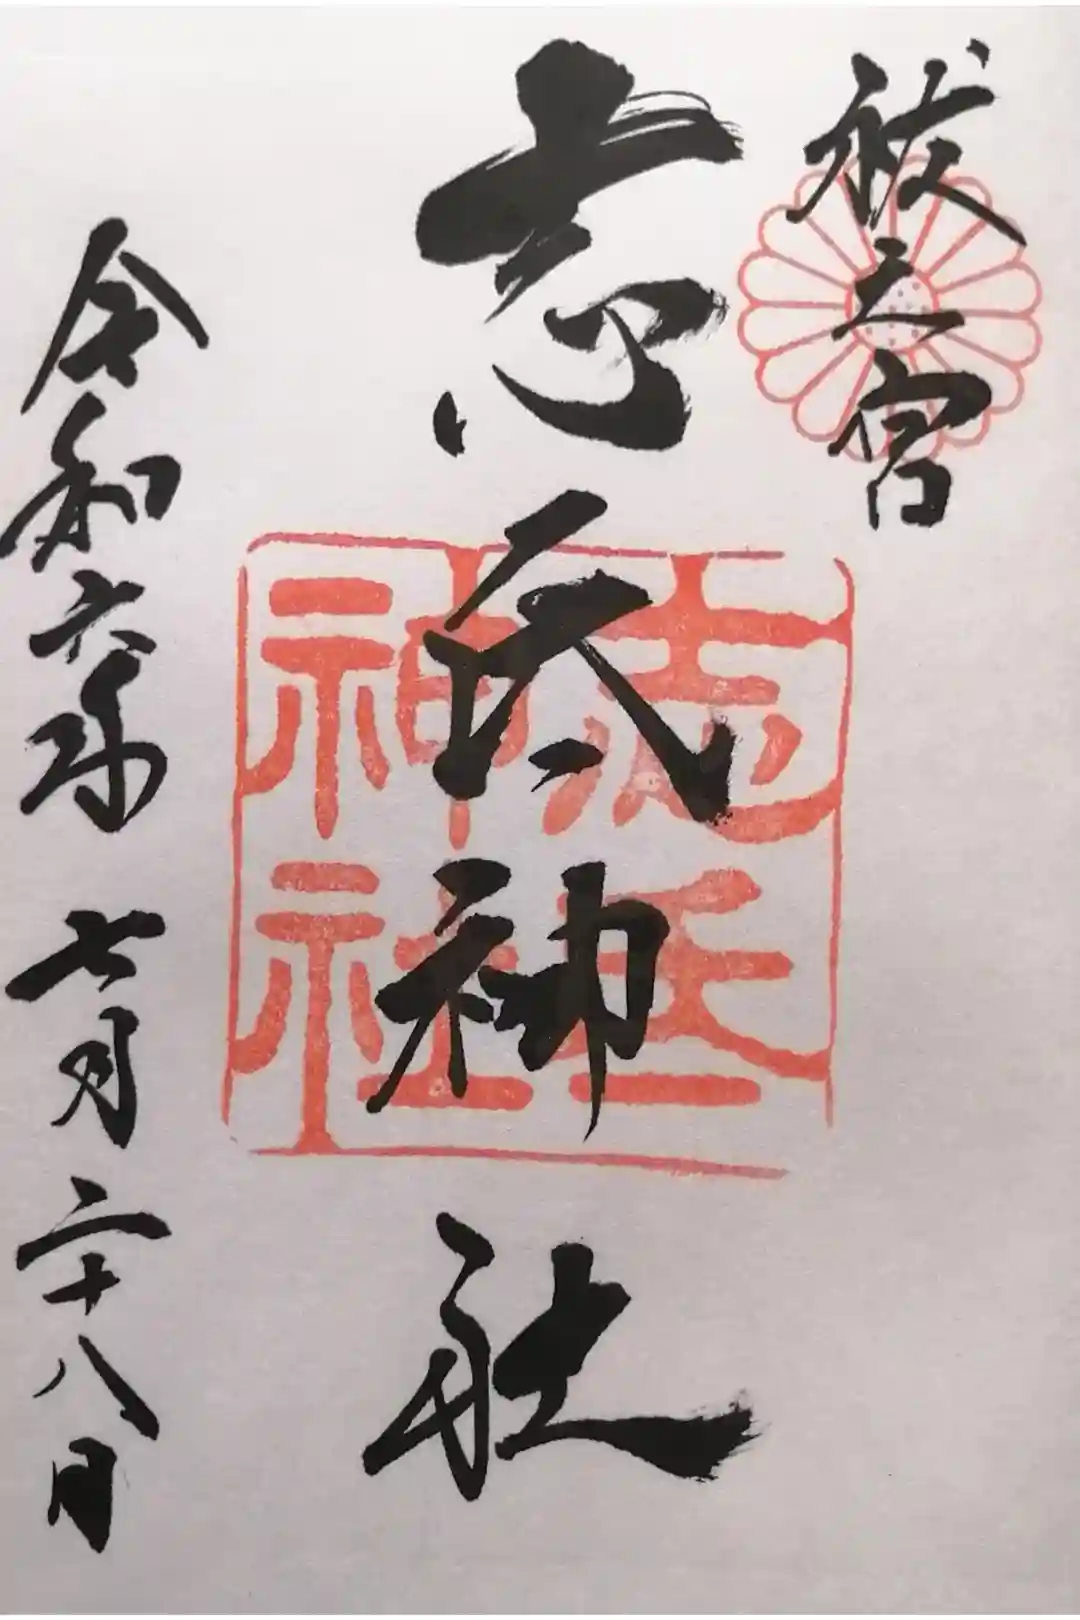 祓之宮
志氐神社
令和六年七月二十八日
志氐
神社